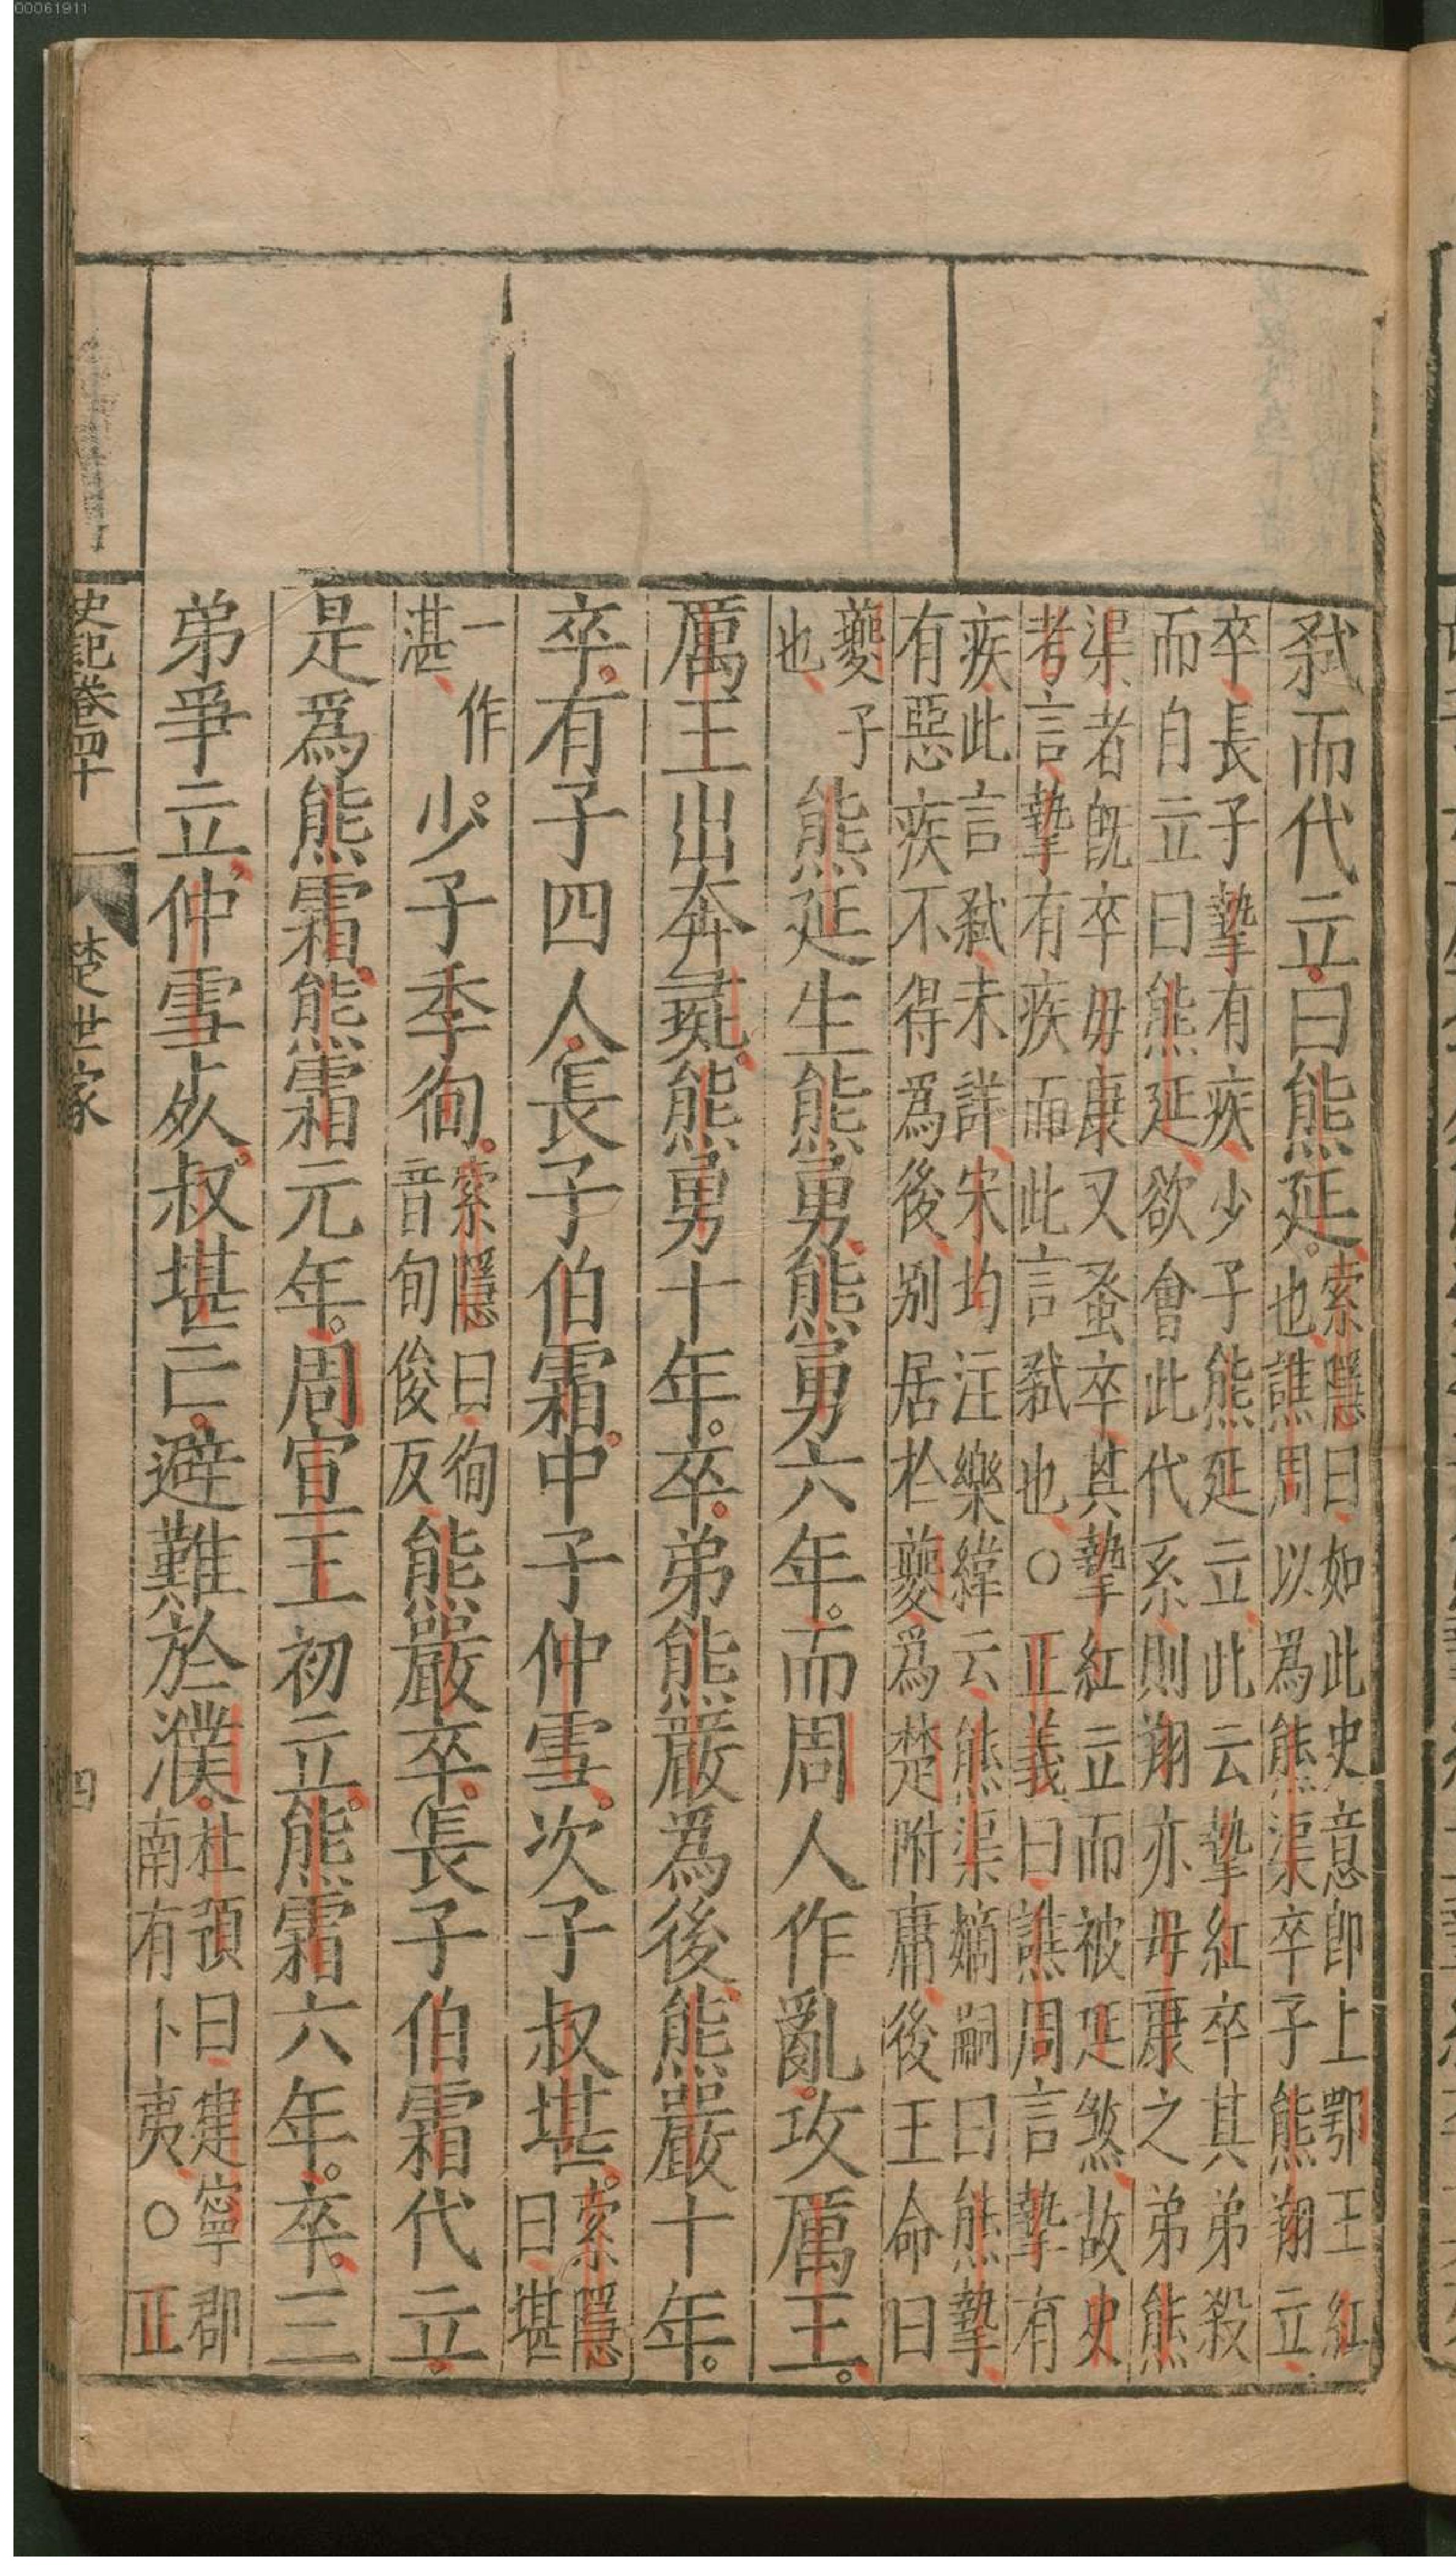 00061911
弑而代立曰熊延索隱曰如此史意卽上鄂王紅
也譙周以爲熊渠卒子熊翔立
卒長子摯有疾少子熊延立此云摯紅卒其弟殺
而自立曰熊延欲會此代系則翔亦毋康之弟熊
渠者旣卒毋康又蚤卒其摯紅立而被延煞故史
考言摯有疾而此言弑也○正義曰譙周言摯有
疾此言弑未詳宋均注樂緯云熊渠嫡嗣曰熊摯
有惡疾不得爲後别居於夔爲楚附庸後王命曰
夔子
也熊延生熊勇熊勇六年而周人作亂攻厲王
厲王出奔彘熊勇十年卒弟熊嚴爲後熊嚴十年
卒有子四人長子伯霜中子仲雪次子叔堪索隱
曰堪
一作
湛少子季徇索隱曰徇
音旬俊反熊嚴卒長子伯霜代立
是爲熊霜熊霜元年周宣王初立熊霜六年卒三
弟爭立仲雪死叔堪亡避難於濮杜預曰建寧郡
南有卜夷○正
史記卷四十 楚世家 四